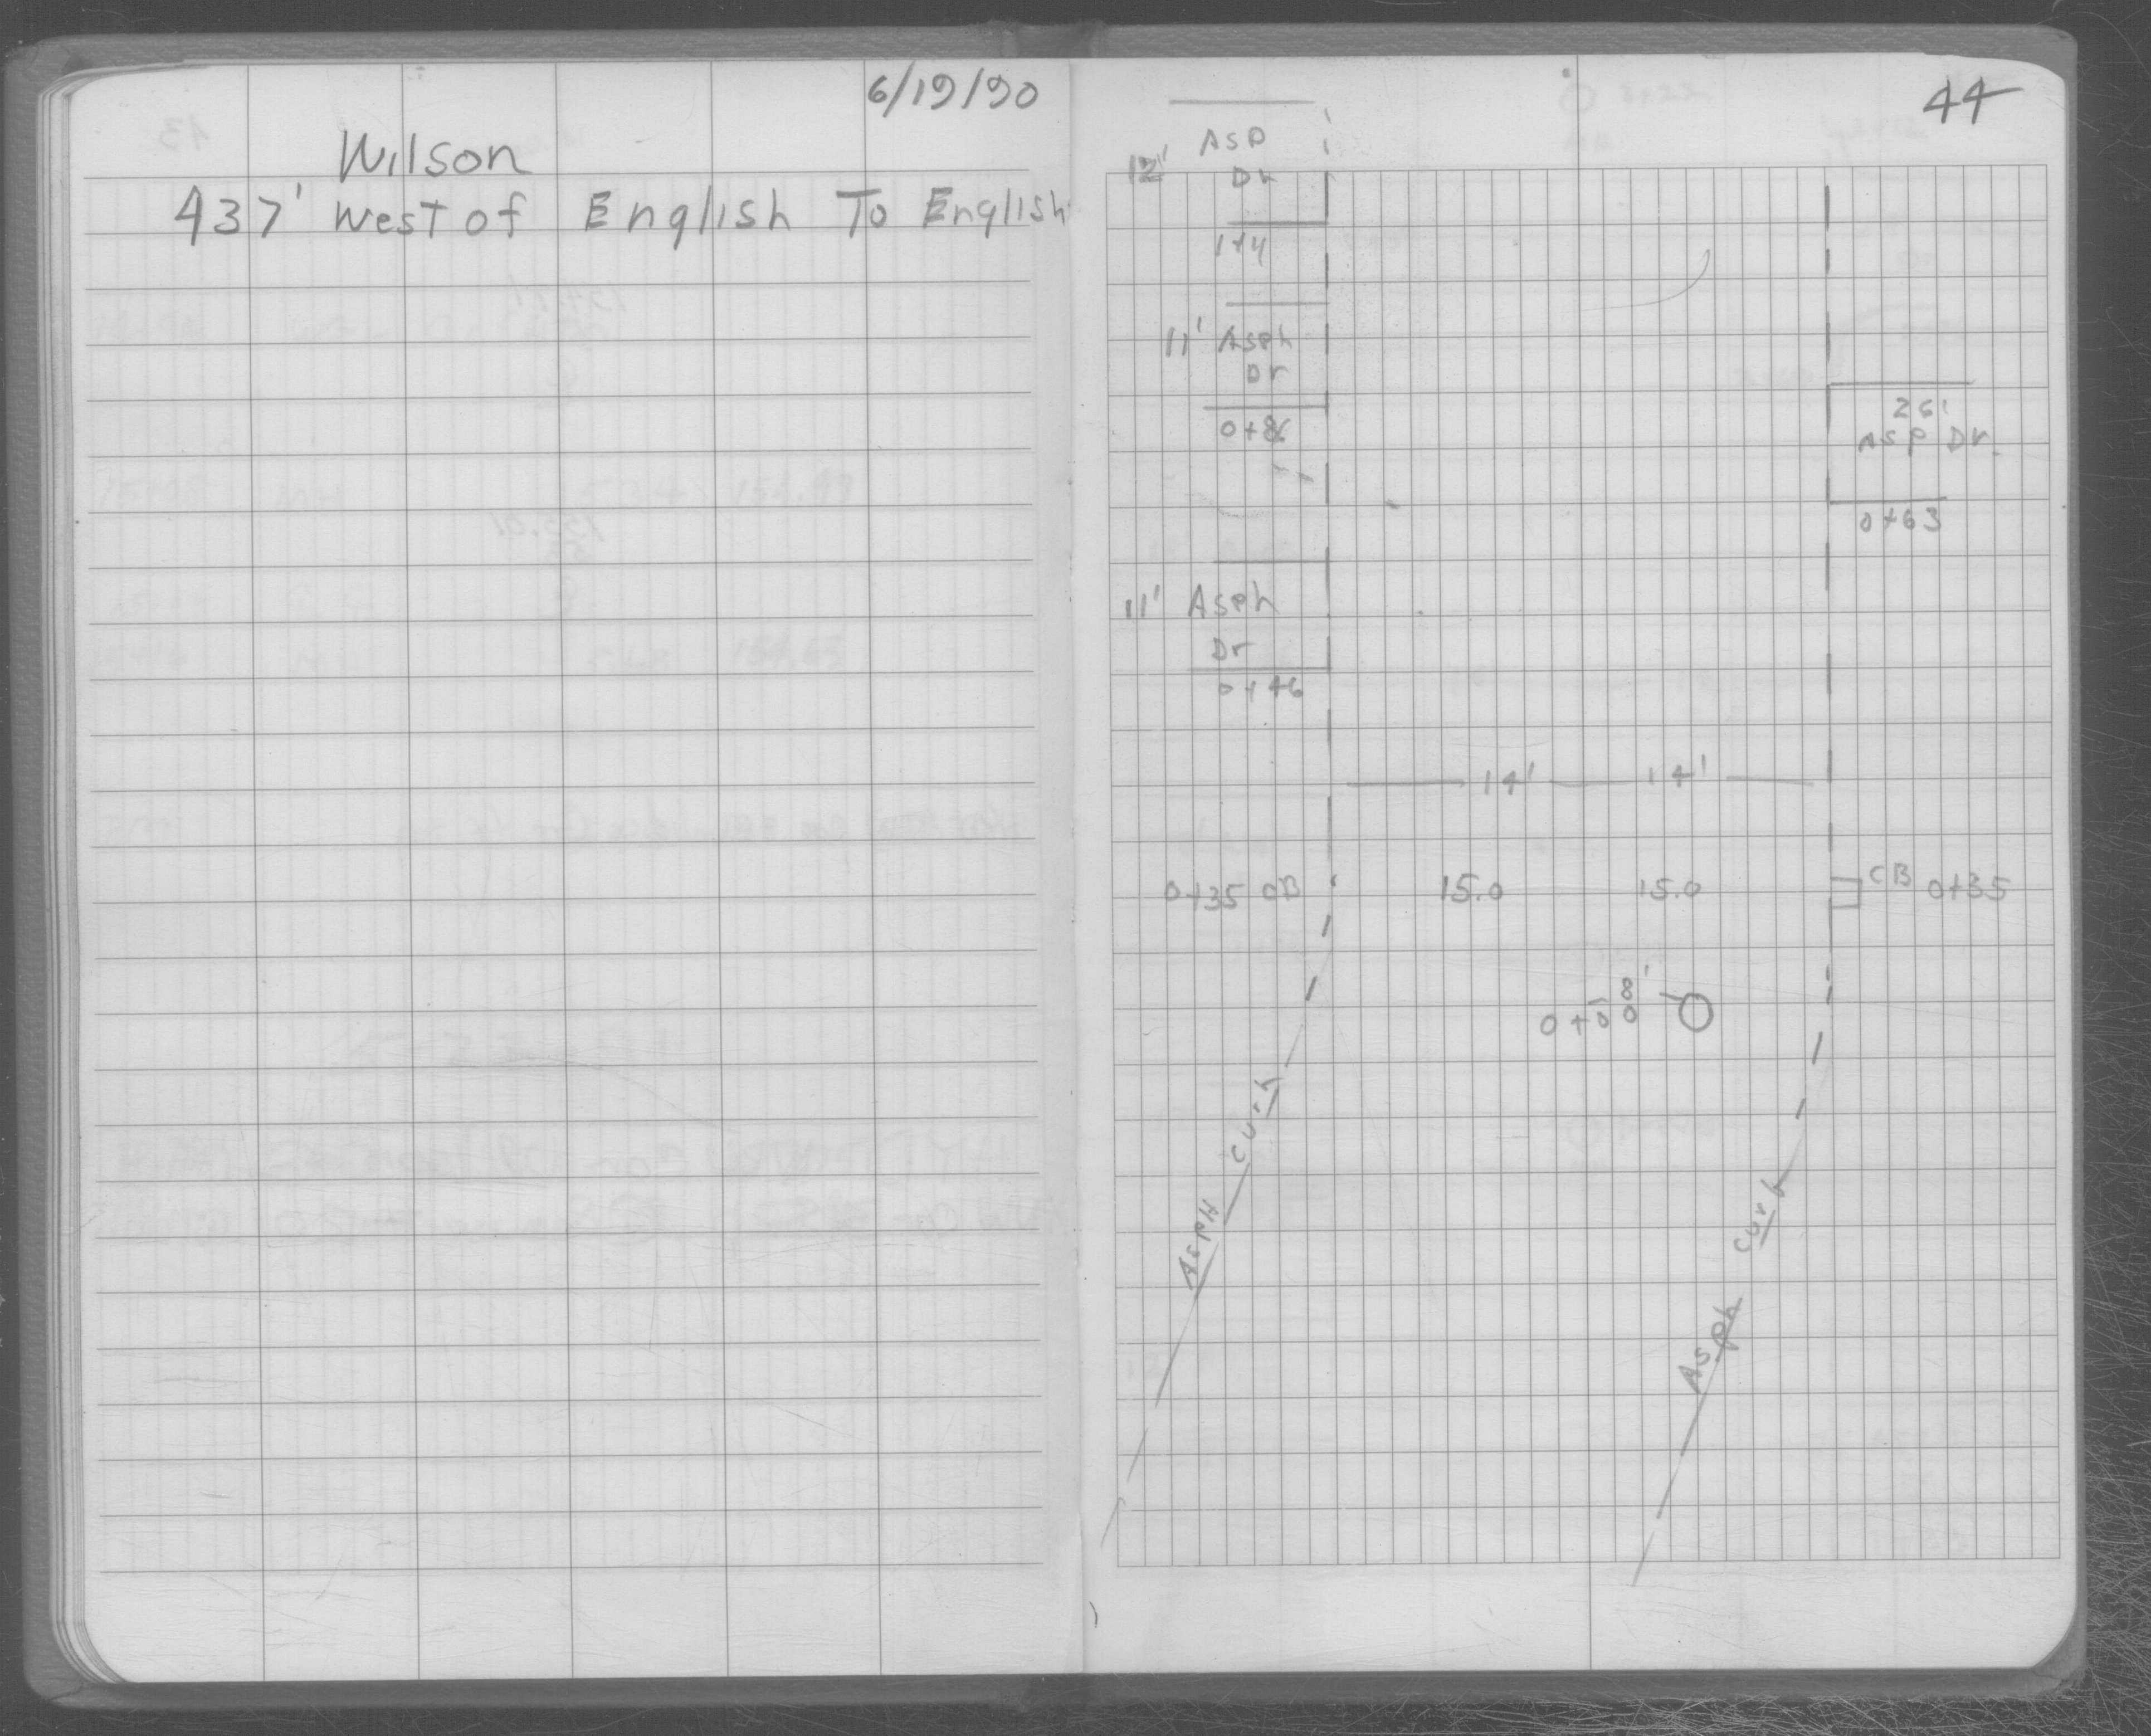 6/19/90
Wilson
437' West of English To English
44
12' Asp
Dr
1+14
11' Asph
Dr
0+86
26'
Asp Dr.
0+63
11' Asph
Dr
0+46
14' 14'
0+35 CB 15.0 15.0 CB 0+35
8'
0+00
Asph Curb
Asph Curb